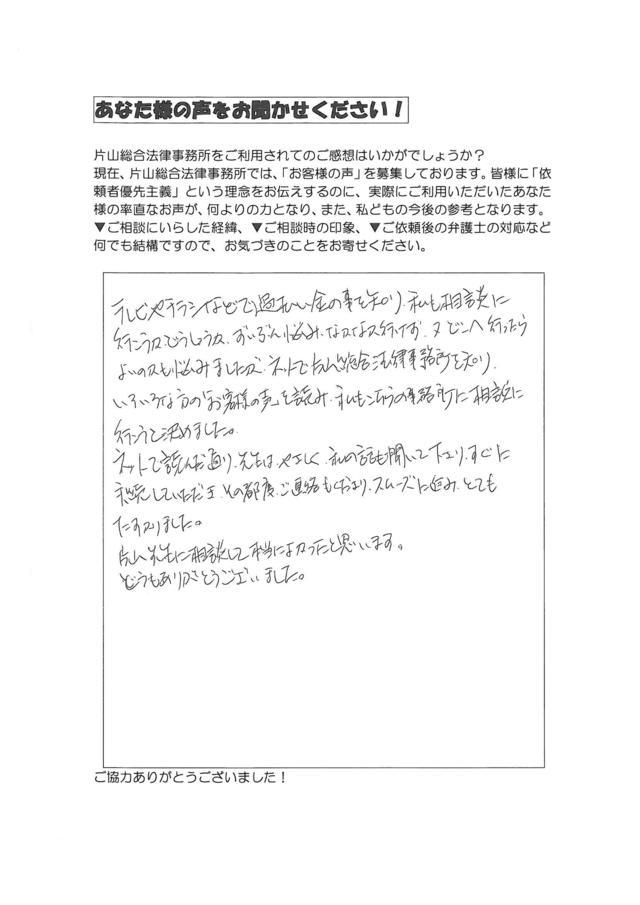 あなた様の声をお聞かせください！
片山総合法律事務所をご利用されてのご感想はいかがでしょうか？
現在、片山総合法律事務所では、「お客様の声」を募集しております。皆様に「依
頼者優先主義」という理念をお伝えするのに、実際にご利用いただいたあなた
様の率直なお声が、何よりの力となり、また、私どもの今後の参考となります。
▼ご相談にいらした経緯、▼ご相談時の印象、▼ご依頼後の弁護士の対応など
何でも結構ですので、お気づきのことをお寄せください。
テレビやチラシなどで過払い金の事を知り、私も相談に
行こうか、どうしようか、ずいぶん悩み、なかなか行けず、又どこへ行ったら
よいのかも悩みましたが、ネットで片山総合法律事務所を知り、
いろいろな方の「お客様の声」を読み、私もこちらの事務所に相談に
行こうと決めました。
ネットで読んだ通り、先生は、やさしく、私の話も聞いて下さり、すぐに
手続していただき、その都度、ご連絡もくださり、スムーズに進み、とても
たすかりました。
片山先生に相談して本当によかったと思います。
どうもありがとうございました。
ご協力ありがとうございました！